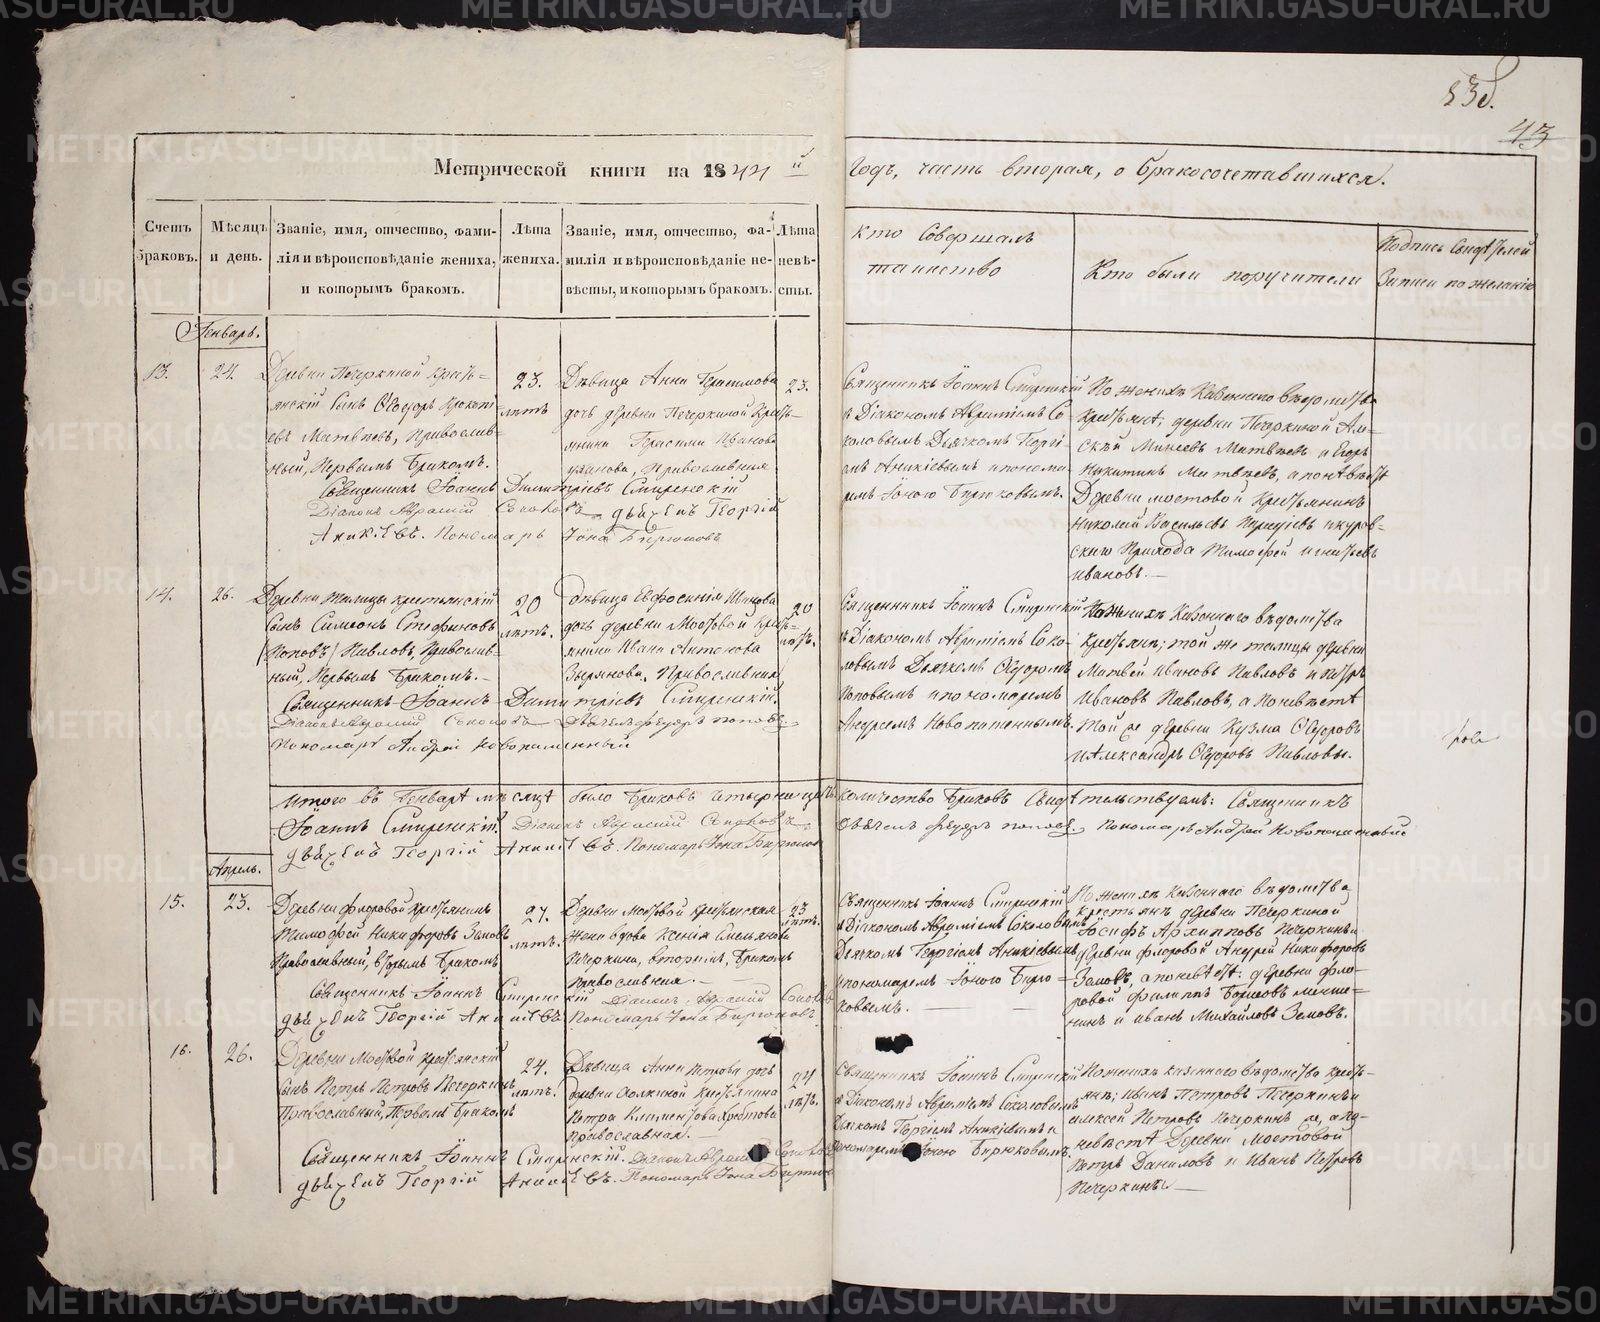 43
Метрической книги на 1844й
Годъ, часть вторая, о бракосочетавшихся.
Счетъ браковъ.
Мѣсяцъ и день.
Званіе, имя, отчество, фами-
лія и вѣроисповѣданіе жениха,
и которымъ бракомъ.
Лѣта
жениха.
Званіе, имя, отчество, фа-
милія и вѣроисповѣданіе не-
вѣсты, и которымъ бракомъ.
Лѣта
невѣ-
сты.
Кто совершалъ
таинство
Кто были поручители
Подпись свидѣтелей
Записи по желанію
Генварь.
13.
24.
Деревни Печеркиной кресть-
янскій сынъ Ѳеодоръ
евъ Матвѣевъ, Православ-
ный, Первымъ бракомъ.
23.
лѣтъ
Дѣвица Анна Герасимова
дочь деревни Печеркиной кресть-
янина Герасима Иванова
Православная
23.
Священникъ Іоаннъ Смиренскій
съ Діакономъ Авраміемъ Со-
коловымъ Дьячкомъ Георгі-
емъ Аникіевымъ и понома-
ремъ Іоною Бирюковымъ.
По женихѣ Казеннаго вѣдомства
крестьяне, деревни Печеркиной Ал-
ксѣй Матвѣевъ и Егоръ
Никитинъ Матвѣевъ, а по невѣстѣ
Деревни мостовой крестьянинъ
Николай Васильевъ и куров-
скаго прихода Тимофей Игнатьевъ
Ивановъ.
Священникъ Іоаннъ Димитріевъ Смиренскій
Діаконъ Аврамій Соколовъ дьячекъ Георгій
Аникіевъ. Пономарь Іона Бирюковъ
14.
26.
Деревни Талицы крестьянскій
сынъ Симеонъ Стефановъ
Поповъ, Павловъ, Православ-
ный, Первымъ бракомъ.
20
лѣтъ.
дѣвица Евфросинія Иванова
дочь деревни Мостовой кресть-
янина Ивана Антонова
Зырянова, Православная
20
лѣтъ.
Священникъ Іоаннъ Смиренскій
съ Діакономъ Авраміемъ Соко-
ловымъ Дьячкомъ Ѳеодоромъ
Поповымъ и пономаремъ
Андреемъ Новопашеннымъ.
По женихѣ Казеннаго вѣдомства
крестьяне; той же талицы деревни
Матвей Ивановъ Павловъ и Петръ
Ивановъ Павловъ, а по невѣстѣ
Той же деревни Кузма Ѳедоровъ
и Александръ Ѳедоровъ Павловы.
Священникъ Іоаннъ Димитріевъ Смиренскій
Діаконъ Аврамій Соколовъ Дьячекъ Феодоръ поповъ
Пономарь Андрей Новопашенный
Итого въ Генварѣ мѣсяцѣ было браковъ четырнадцать количество браковъ свидѣтельствуемъ: Священникъ
Іоаннъ Смиренскій. Діаконъ Аврамій Соколовъ Дьячекъ феодоръ поповъ. Пономарь Андрей Новопашенный
дьячекъ Георгій Аникіевъ. Пономарь Іона Бирюковъ
Апрель.
15.
23.
Деревни флоровой крестьянинъ
Тимофей Никифоровъ Земовъ
Православный, вторымъ бракомъ
27.
лѣтъ.
Деревни Мостовой крестьянская
жена вдова Ксенія Емельянова
Печеркина, вторымъ, бракомъ
Православная.
23
лѣтъ.
Священникъ Іоаннъ Смиренскій
съ Діакономъ Авраміемъ Соколовымъ
Дьячкомъ Георгіемъ Аникіевымъ
и пономаремъ Іоною Бирю-
ковымъ.
По женихѣ Казеннаго вѣдомства
крестьяне деревни Печеркиной
Іосифъ Архиповъ Печеркинъ и
деревни флоровой Андрей Никифоровъ
Земовъ, а по невѣстѣ: деревни фло-
ровой филиппъ
и Иванъ Михайловъ Земовъ.
Священникъ Іоаннъ Смиренскій Діаконъ Аврамій Соколовъ
дьячекъ Георгій Аникіевъ Пономарь Іона Бирюковъ
16.
26.
Деревни Мостовой крестьянскій
сынъ Петръ Петровъ Печеркинъ
Православный, Первымъ бракомъ
24.
лѣтъ.
Дѣвица Анна Петрова дочь
деревни крестьянина
Петра Климентова
Православная.
24
лѣтъ.
Священникъ Іоаннъ Смиренскій
съ Діакономъ Авраміемъ Соколовымъ
Дьячкомъ Георгіемъ Аникіевымъ и
пономаремъ Іоною Бирюковымъ.
По женихѣ казеннаго вѣдомства кресть-
яне; Иванъ Петровъ Печеркинъ и
алексей Петровъ Печеркинъ же, а по
невѣстѣ Деревни Мостовой
Петръ Даниловъ и Иванъ Петровъ
Печеркинъ.
Священникъ Іоаннъ Смиренскій. Діаконъ Аврамій Соколовъ
дьячекъ Георгій Аникіевъ. Пономарь Іона Бирюковъ
METRIKI.GASO-URAL.RU